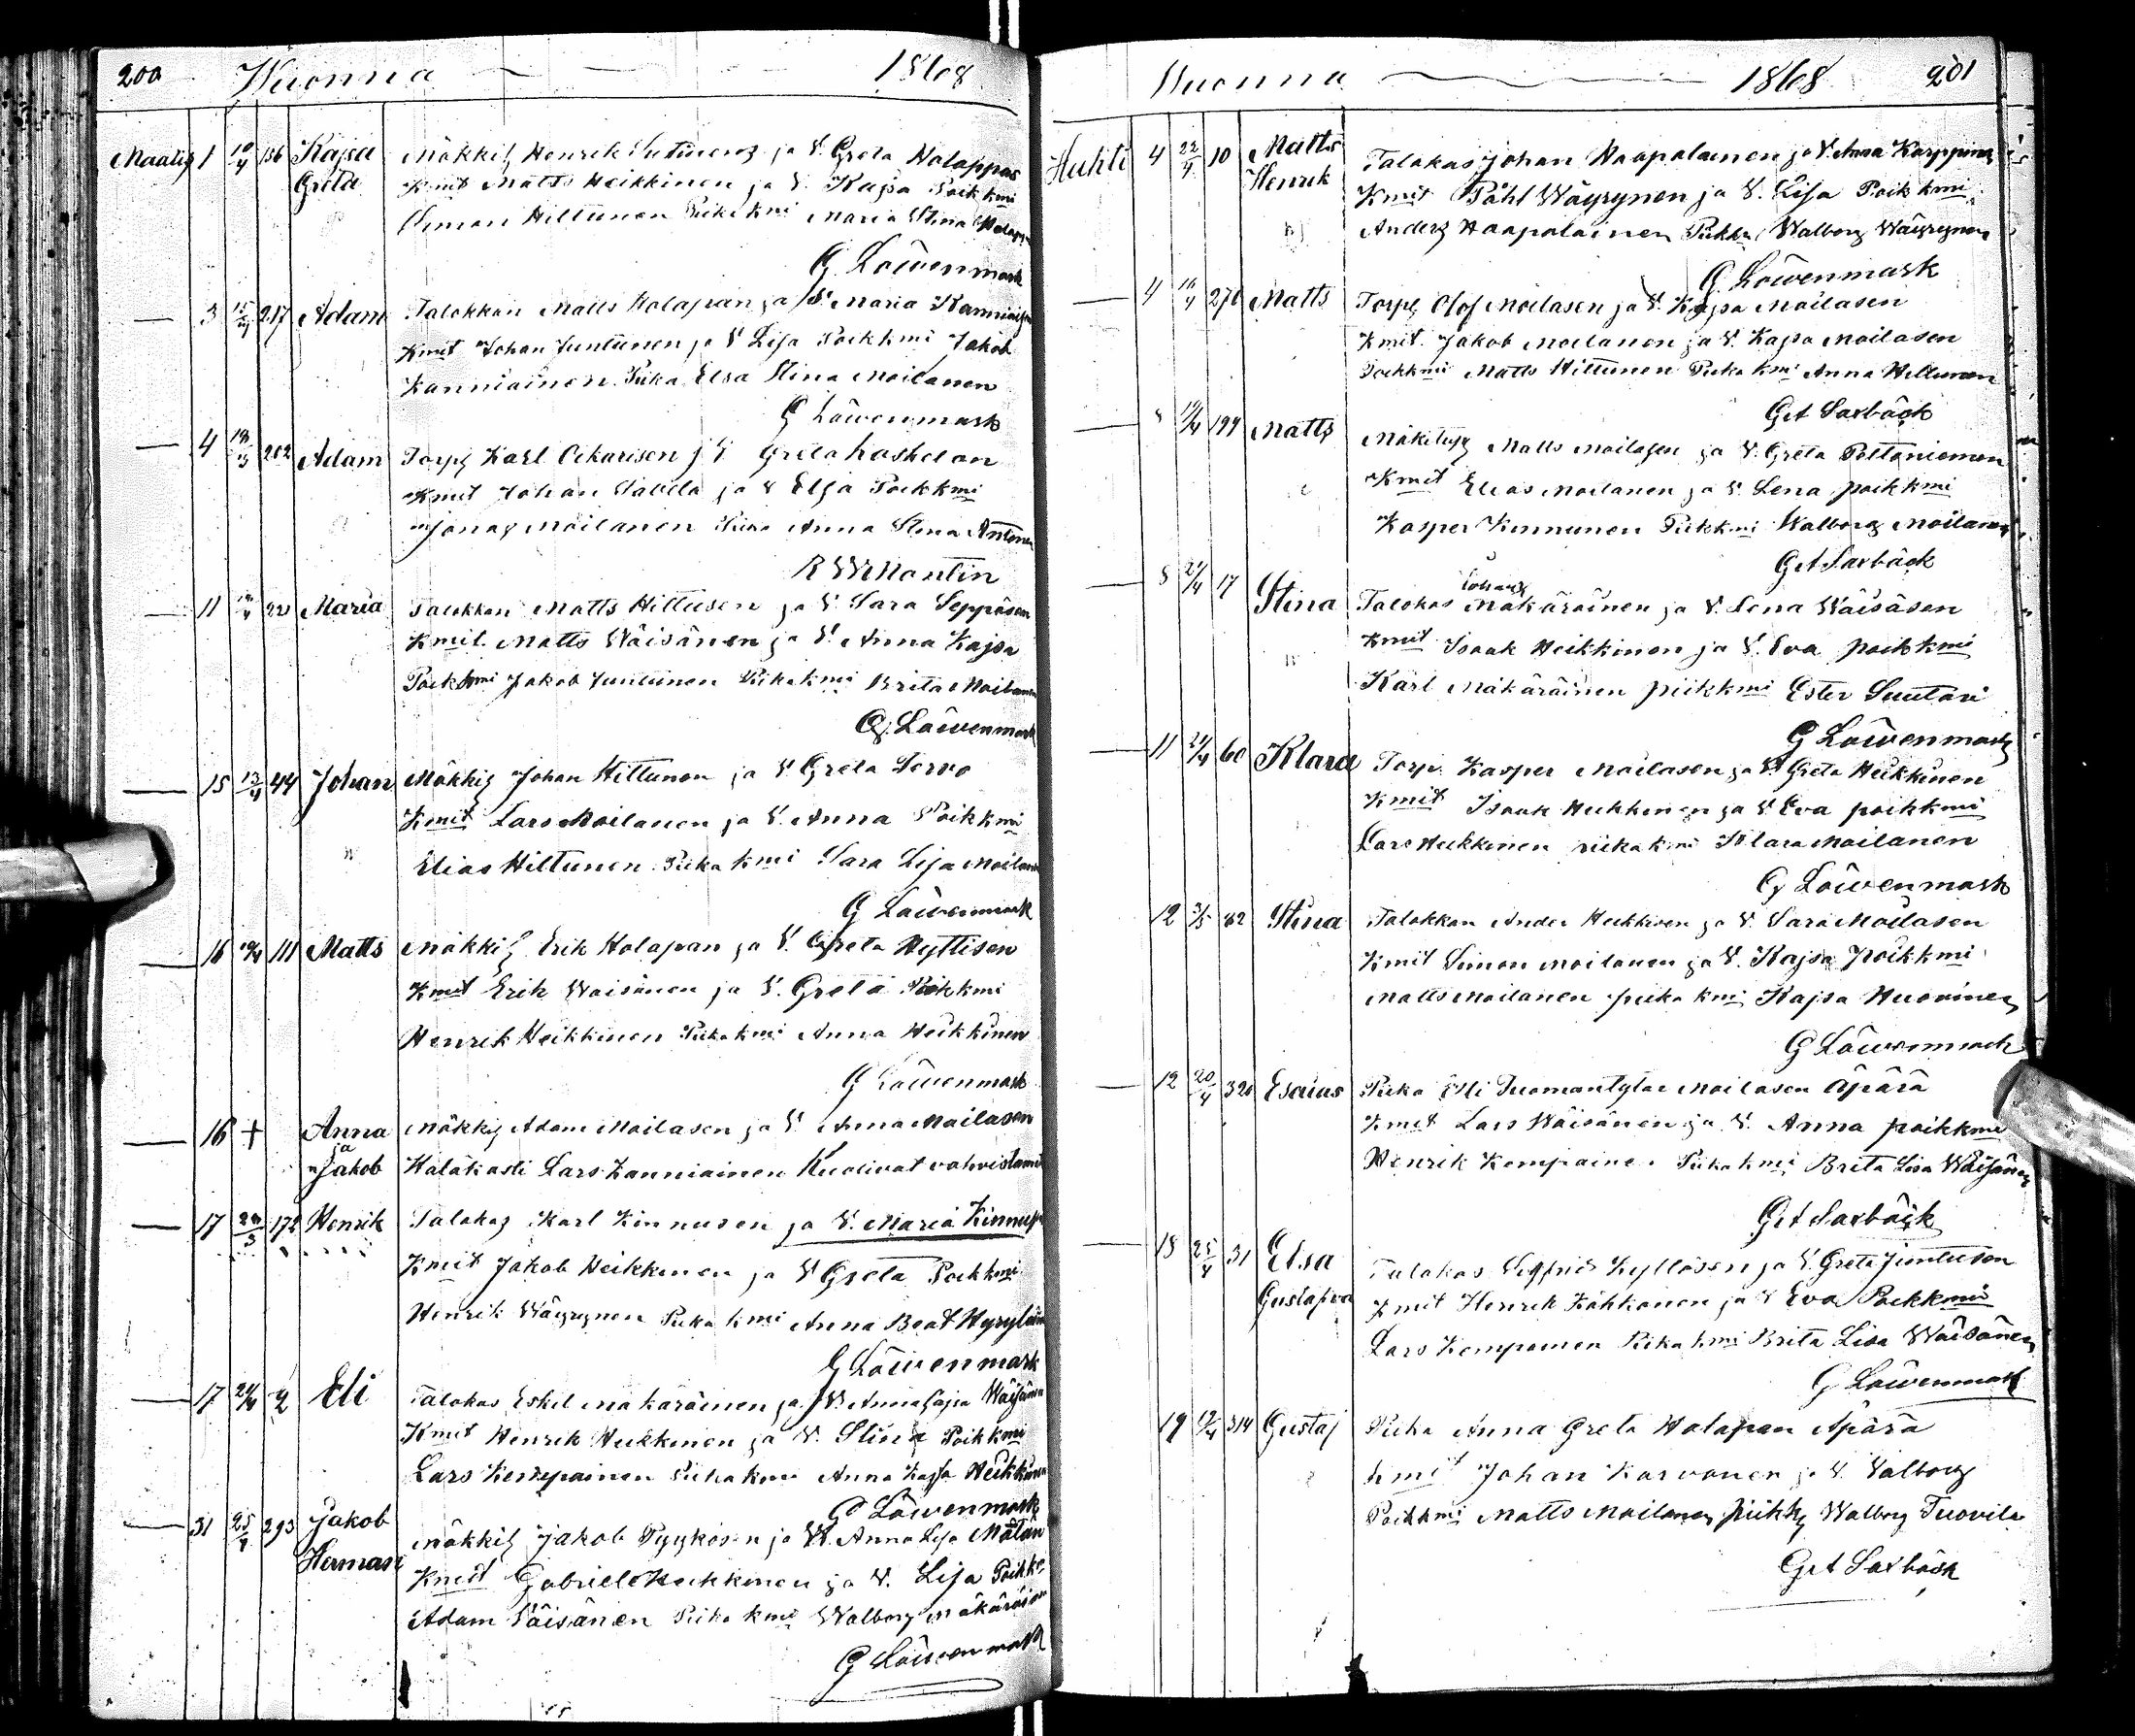 200 Wuonna 1868
Maalis 1 10/4 156 Kajsa Mökkiz Henrik Sutinens ja V. Greta Holappas
Greta Kmit Matts Heikkinen ja V. Kajsa Poikkmi
Simon Hiltunen Piika kmi Maria Stina
G. Löwenmark
3 217 Adam Talokkan Matts Holapan ja V. Maria
Kmit Johan Juntunen ja V Lisa Poikkmi Jakob
Kanniainen Piika Elsa Stina Moilanen
G Löwenmark
4 202 Adam Torpz Karl Ockarisen j V Greta
Kmit Johan ja V Elsa Poikkmi
Jonas Moilanen Piika Anna Stina
R W Montin
11 Maria Talokkan Matts Hiltusen ja V. Sara Seppäsen
Kmit. Matts Wäisänen ja V. Anna Kajsa
Poikkmi Jakob Juntunen Piikakmi Brita Moilanen
G. Löwenmark
15 13/4 44 Johan Mökkiz Johan Hiltunen ja V. Greta Servo
Kmit Lars Moilanen ja V. Anna Poikkmi
Elias Hiltunen Piika kmi Sara Lisa Moilanen
G Löwenmark
16 111 Matts Mökkiz Erik Holapan ja V. Greta Hyttisen
Kmit Erik Waisänen ja V. Greta Poikkmi
Henrik Heikkinen Piikakmi Anna Heikkinen
G Löwenmark
16 + Anna Mökkiz Adam Moilasen ja V. Anna Moilasen
ja
Jakob Hätäkasti Lars Kanniainen Kuolivat vahvistami
17 172 Henrik Talokaz Karl Kinnusen ja V. Maria
Kmit Jakob Heikkinen ja V Greta Poikkmi
Henrik Wäyrynen Piika kmi Anna Beat
G Löwenmark
17 2 Eli Talokas Eskil Mäkäräinen ja V. Anna Kajsa
Kmit Henrik Heikkinen ja V. Stina Poikkmi
Lars Kemppainen Piikakmi Anna Kajsa Heikkinen
G Löwenmark
31 25/4 293 Jakob Mökkiz Jakob Pyykösen ja V. Anna Lisa
Herman Kmit Gabriel Heikkinen ja V. Lisa Poikk
Adam Väisänen Piika kmi Walborg Mäkäräinen
G Löwenmark
Wuonna 1868 201
Huhti 4 22/4 10 Matts Talokas Johan Haapalainen ja V. Anna Karppinen
Henrik Kmit Påhl Wäyrynen ja V. Lisa Poikkmi
Anders Haapalainen Piikka Walborg Wäyrynen
G. Löwenmark
4 276 Matts Torpz Olof Moilasen ja V. Kajsa Moilasen
Kmit. Jakob Moilanen ja V. Kajsa Moilasen
Poikkmi Matts Hiltunen Piika kmi Anna Hiltunen
Get Saxbäck
199 Matts Mäkitupz Matts Moilasen ja V. Greta Poltoniemen
Kmit Elias Moilanen ja V. Lena poikkmi
Kasper Kinnunen Piikkmi Walborg Moilanen
Get Saxbäck
Johan
8 17 Stina Talokas Mäkäräinen ja V. Lena Wäisäsen
Kmit Isaak Heikkinen ja V. Eva poikkmi
Karl Mäkäräinen piikkmi Ester Suutari
G Löwenmark
11 60 Klara Torp. Kasper Moilasen ja V. Greta Heikkinen
Kmit Isaak Heikkinen ja V Eva poikkmi
Lars Heikkinen piikakmi Klara Moilanen
G Löwenmark
12 3/5 82 Stina Talokkan Ander Heikkinen ja V. Sara Moilasen
Kmit Simon Moilanen ja V. Kajsa Poikkmi
Matts Moilanen piika kmi Kajsa Huovinen
G Löwenmark
12 20/4 320 Esaias Piika Eli Tuomantytar Moilasen Äpärä
Kmit Lars Wäisänen ja V. Anna poikkmi
Henrik Kempainen Piikakmi Brita Lisa Wäisänen
Get Saxbäck
18 25/4 31 Elsa Talokas Sigfrid Kyllösen ja V. Greta Juntusen
Gustafva Kmit Henrik Kähkönen ja V Eva Poikkmi
Lars Kempainen Piika kmi Brita Lisa Wäisänen
G Löwenmark
19 314 Gustaf Piika Anna Greta Holapan Äpärä
Kmit Johan Karvonen ja V. Valborg
Poikkmi Matts Moilanen Piikkz Walborg Tuovila
Get Saxbäck